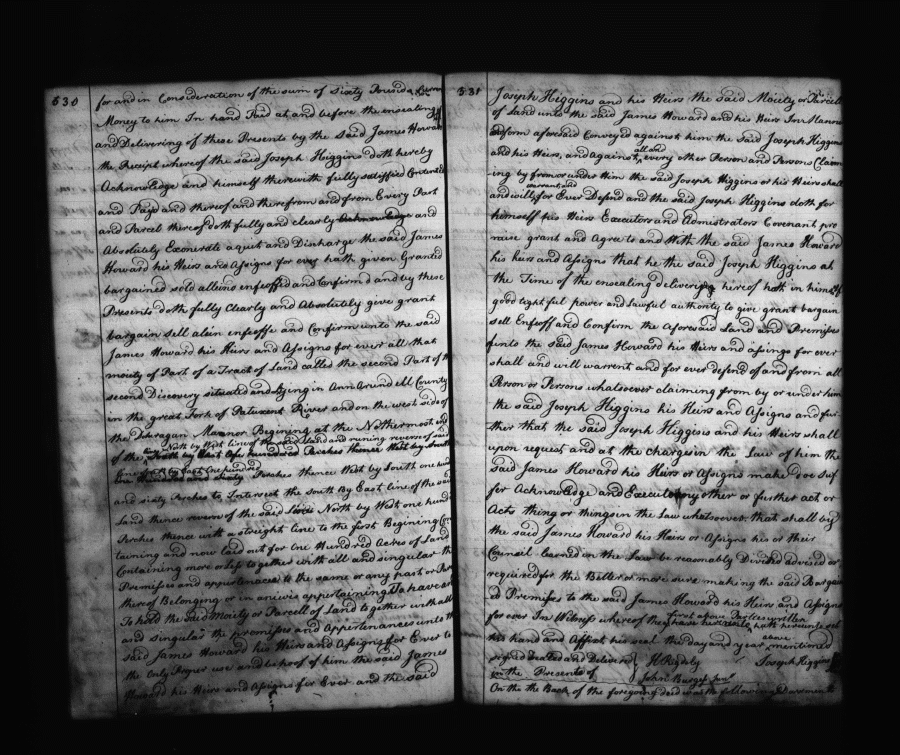 530
for and in Consideration of the sum of Sixty Pounds Curre
Money to him In hand Paid at and before the ensealing
and Delivering of these Presents by the said James Howar
the Receipt whereof the said Joseph Higgins doth hereby
Acknowledge and himself therewith fully satisfied Contented
and Paid and thereof and therefrom and from Every Part
and Parcel thereof doth fully and clearly Acknowledge and
Absolutely Exonerate aquit and Discharge the said James
Howard his Heirs and Assigns for ever hath given Granted
bargained sold aliened enfeoffed and Confirmd and by these
Presents doth fully Clearly and Absolutely give grant
bargain sell alein enfeoffe and Confirm unto the said
James Howard his Heirs and Assigns for ever all that
moiety of Part of a Tract of Land called the second Part of th
second Discovery situated and Lying in Ann Arundell County
in the great Fork of Patuxent River and on the west side of
the Manner Begining at the Nethermost end
of the North by West line of the said Land and runing reverse of said
line South by East One hundred
One Hundred and sixty Perches thence West by South one hun
and sixty Perches to Intersect the South By East line of the said
Land thence revers of the said Line North by West one hund
Perches thence with a straight line to the first Begining Con
taining and now laid out for One Hundred Acres of Land
Containing more or less together with all and singular th
Premises and appertenaces to the same or any part or Par
thereof Belonging or in aniwis appertaining To have an
To hold the said Moiety or Parcell of Land together with all
and Singular the promises and Appertenances unto th
said James Howard his Heirs and Assigns for Ever to
the Only Proper use and behoof of him the said James
Howard his Heirs and Assigns for Ever and the said
531
Joseph Higgins and his Heirs the said Moiety or Parcel
of Land unto the said James Howard and his Heirs In Manner
and form aforesaid Conveyed against him the said Joseph Higgins
all and
and his Heirs, and against every other Person and Persons Claim
ing by from or under Him the said Joseph Higgins or his Heirs shall
warrant and
and will for Ever Defend and the said Joseph Higgins doth for
himself his Heirs Executors and Admistrators Covenant pro
mise grant and Agree to and With the said James Howard
his heirs and Assigns that he the said Joseph Higgins at
the Time of the ensealing delivering hereof hath in himself
good rightful power and lawful authority to give grant bargain
sell Enfeoff and Confirm the Aforesaid Land and Premises
unto the said James Howard his Heirs and assings for ever
shall and will warrent and for ever defend of and from all
Person or Persons whatsoever claiming from by or under him
the said Joseph Higgins his Heirs and Assigns and fur
ther that the said Joseph Higgins and his Heirs shall
upon request and at the charges in the Law of him the
said James Howard his Heirs or Assigns make doe Suf
fer Acknowledge and Execute any other or further act or
Acts thing or things in the Law whatsoever that shall by
the said James Howard his Heirs or Assigns his or their
Council learned in the Law be reasonably Divised advised or
required for the Better or more sure making the said Bargain
d Premises to the said James Howard his Heirs and Assigns
first above Parties written
for ever In Witness whereof the hath hereunto set
above
his hand and Affixt his seal the day and year mentined
signed sealed and Delivered
in the Presents of
H Ridgely
John Burgess Junr
Joseph Higgins
On the Back of the foregoing deed was the following